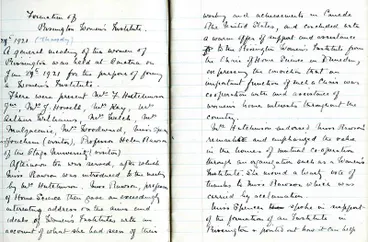 Formation of
Rissington Women's Institute.
1921 (Thursday)
A general meeting of the women of
Rissington was held at
Jan 1921 for the purpose of forming
a Women's Institute.
There were present Mrs F. Hutchinson
Mrs J. Absolom, Mrs Hay, Mrs
Arthur Williams, Mrs
Mrs Woodward, Miss
Professor Helen Rawson
of the Otago University
Afternoon tea was served, after which
Miss Rawson was introduced to the meeting
by Mrs Hutchinson. Miss Rawson, professor
of Home Science then gave an exceedingly
interesting address on the aims and
ideals of Women's Institutes with an
account of what she had seen of their
working and achievements in Canada
The United States, and concluded with
a warm offer of support and assistance
to the Rissington Women's Institute from
the Chair of Home Science in Dunedin,
expressing the conviction that an
important function of that chair was
cooperation with and assistance of
women's home interests throughout the
country.
Mrs Hutchinson endorsed Miss Rawson's
remarks and emphasized the value
in the homes of mutual cooperation
through an organization such as a Women's
Institute. She moved a hearty vote of
thanks to Miss Rawson which was
carried by acclamation.
Miss Spencer spoke in support
of the formation of an Institute in
Rissington & pointed out how it can help